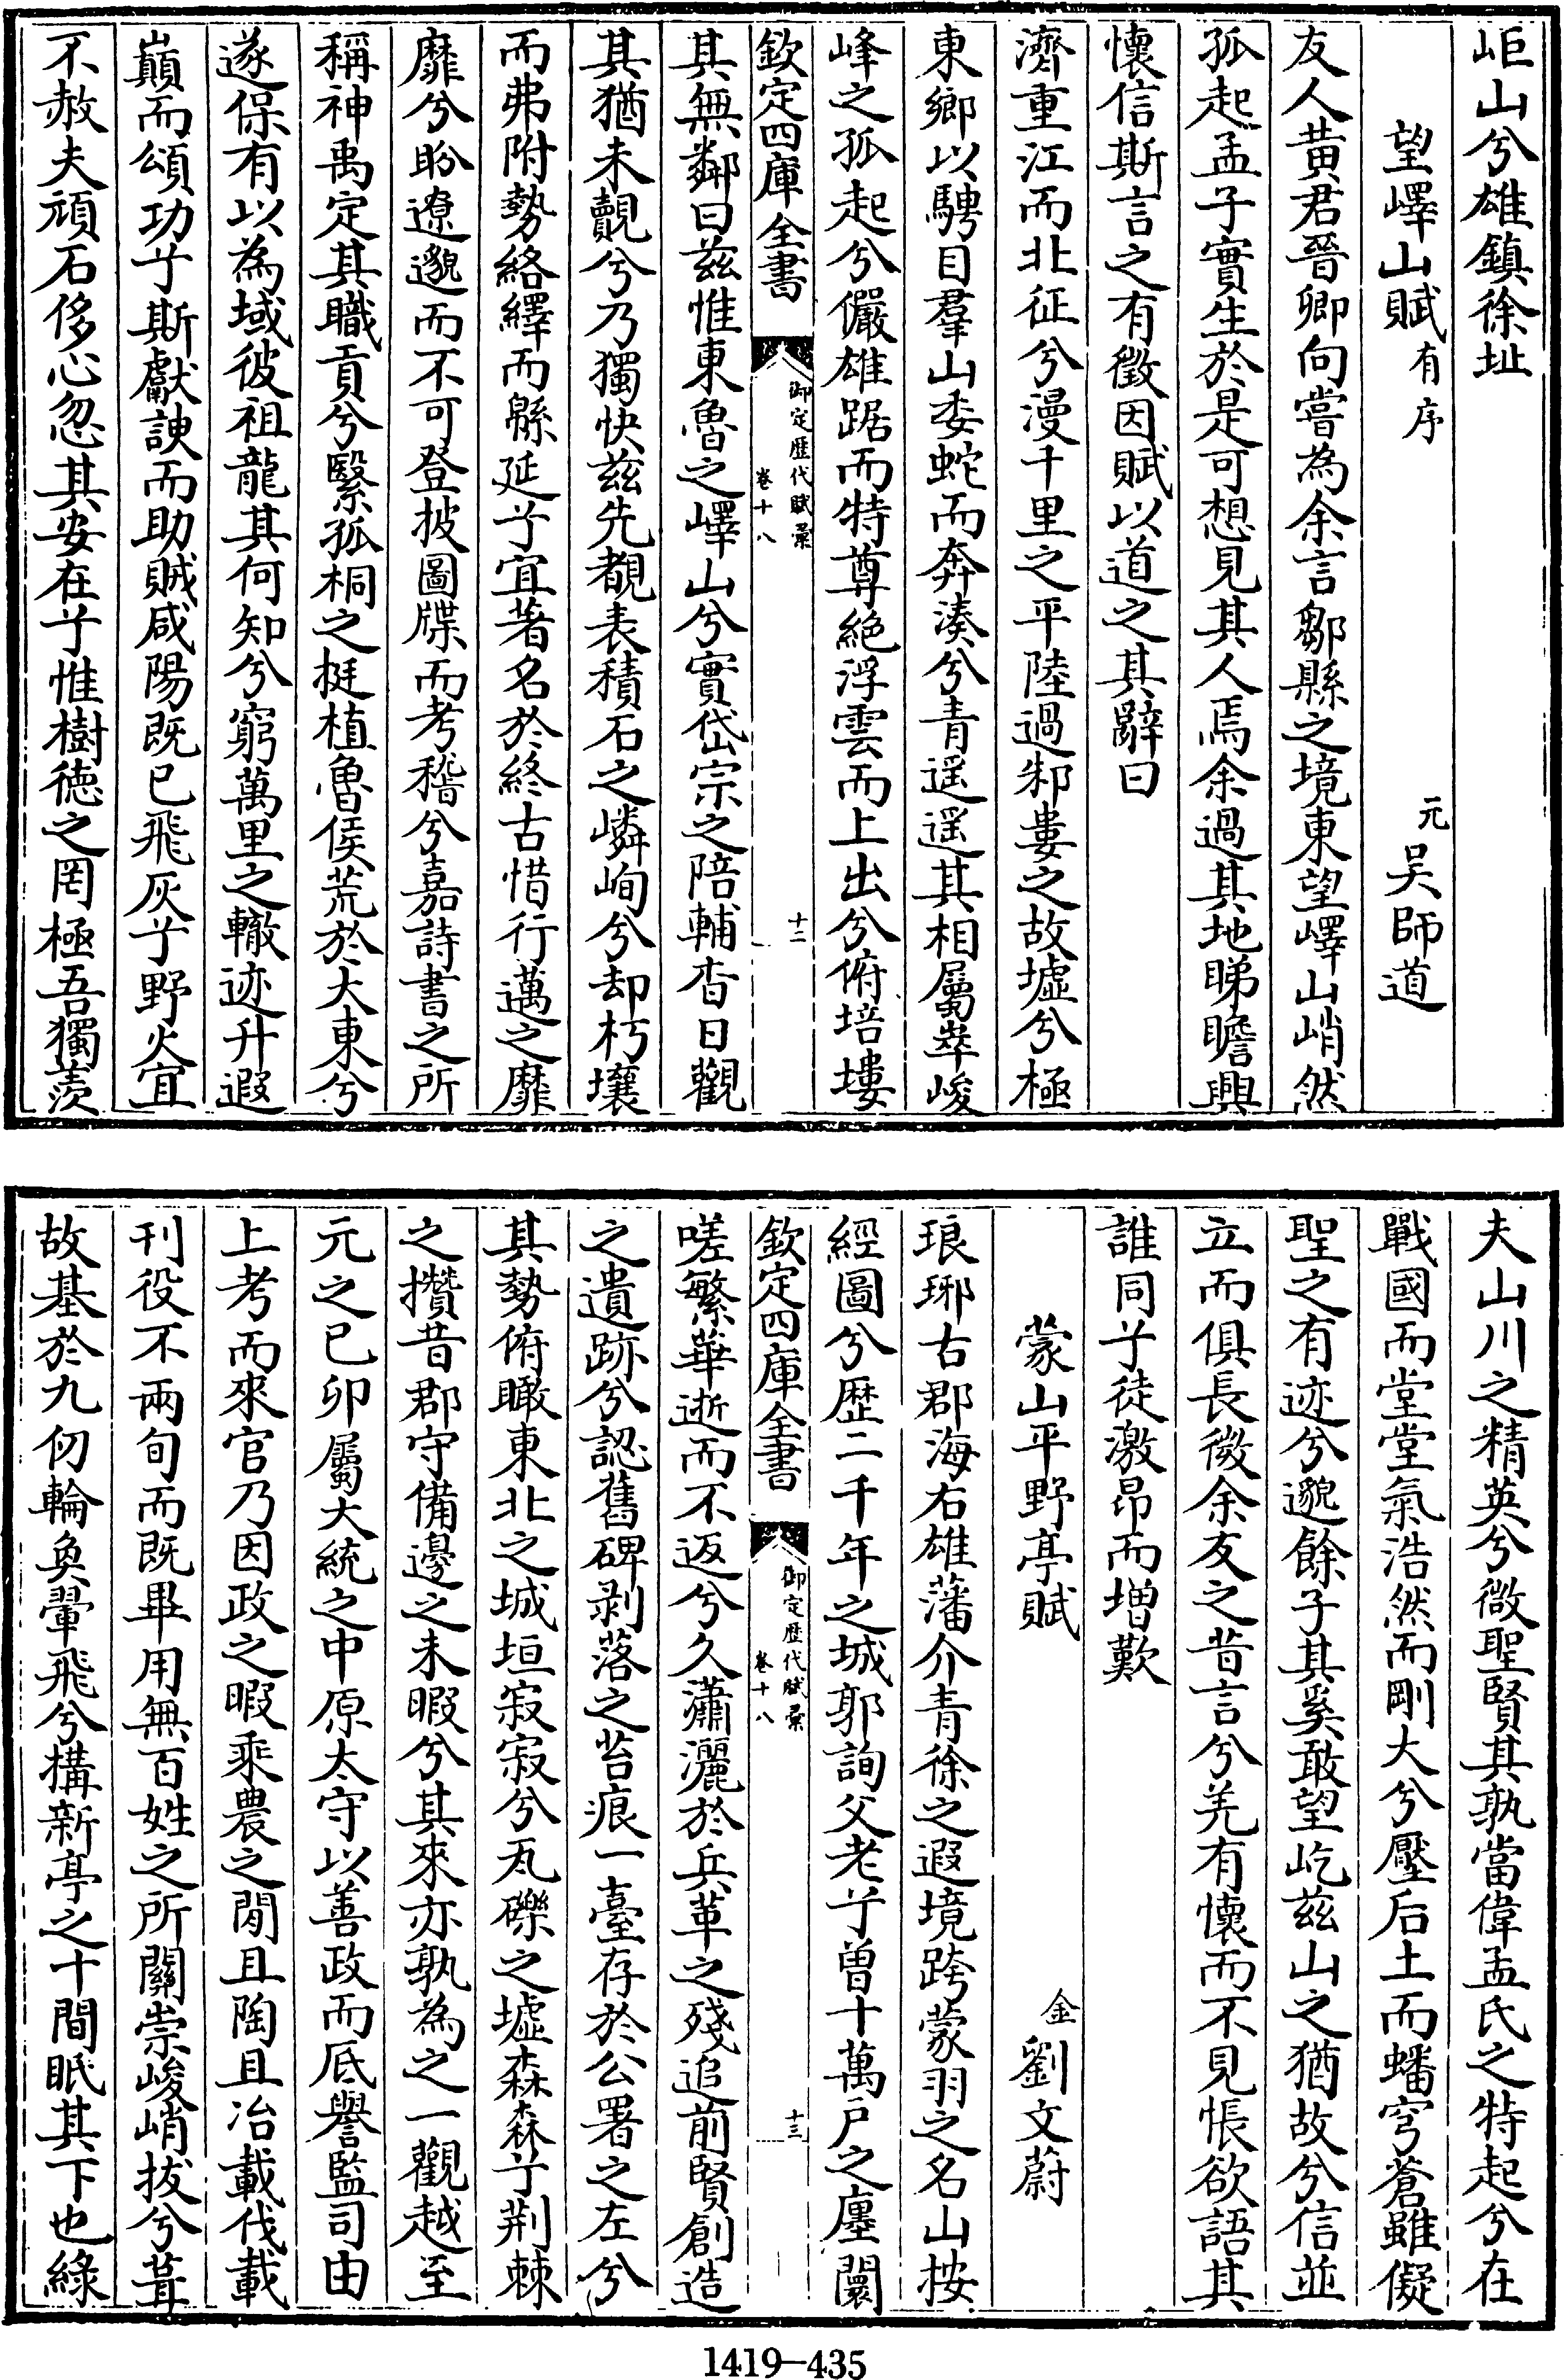 岠山兮雄鎮徐址
望嶧山賦有序 元吳師道
友人黄君晉卿向嘗為余言鄒縣之境東望嶧山峭然
孤起孟子實生於是可想見其人焉余過其地睇瞻興
懷信斯言之有徵因賦以道之其辭曰
濟重江而北征兮漫千里之平陸過邾婁之故墟兮極
東鄉以騁目羣山委蛇而奔湊兮青遥遥其相屬崒峻
峰之孤起兮儼雄踞而特尊絶浮雲而上出兮俯培塿
欽定四庫全書 御定歴代賦彙 卷十八 十二
其無鄰曰兹惟東魯之嶧山兮實岱宗之陪輔杳日觀
其猶未覿兮乃獨快兹先覩表積石之嶙峋兮却朽壤
而弗附勢絡繹而緜延兮宜著名於終古惜行邁之靡
靡兮盼遼邈而不可登披圖牒而考稽兮嘉詩書之所
稱神禹定其職貢兮繄孤桐之挺植魯侯荒於大東兮
遂保有以為域彼祖龍其何知兮窮萬里之轍迹升遐
巔而頌功兮斯獻諛而助賊咸陽既已飛灰兮野火宜
不赦夫頑石侈心忽其安在兮惟樹徳之罔極吾獨羨
夫山川之精英兮微聖賢其孰當偉孟氏之特起兮在
戰國而堂堂氣浩然而剛大兮壓后土而蟠穹蒼雖儗
聖之有迹兮邈餘子其奚敢望屹兹山之猶故兮信並
立而俱長微余友之昔言兮羌有懷而不見悵欲語其
誰同兮徒激昂而增歎
蒙山平野亭賦 金劉文蔚
琅琊古郡海右雄藩介青徐之遐境跨蒙羽之名山按
經圖兮歴二千年之城郭詢父老兮曽十萬戸之廛闤
欽定四庫全書 御定歴代賦彙 卷十八 十三
嗟繁華逝而不返兮久瀟灑於兵革之殘追前賢創造
之遺跡兮認舊碑剥落之苔痕一臺存於公署之左兮
其勢俯瞰東北之城垣寂寂兮瓦礫之墟森森兮荆棘
之攢昔郡守備邊之未暇兮其來亦孰為之一觀越至
元之已卯屬大統之中原太守以善政而底譽監司由
上考而來官乃因政之暇乘農之閒且陶且冶載伐載
刊役不兩旬而既畢用無百姓之所關崇峻峭拔兮葺
故基於九仞輪奐翬飛兮構新亭之十間眂其下也緑
1419—435